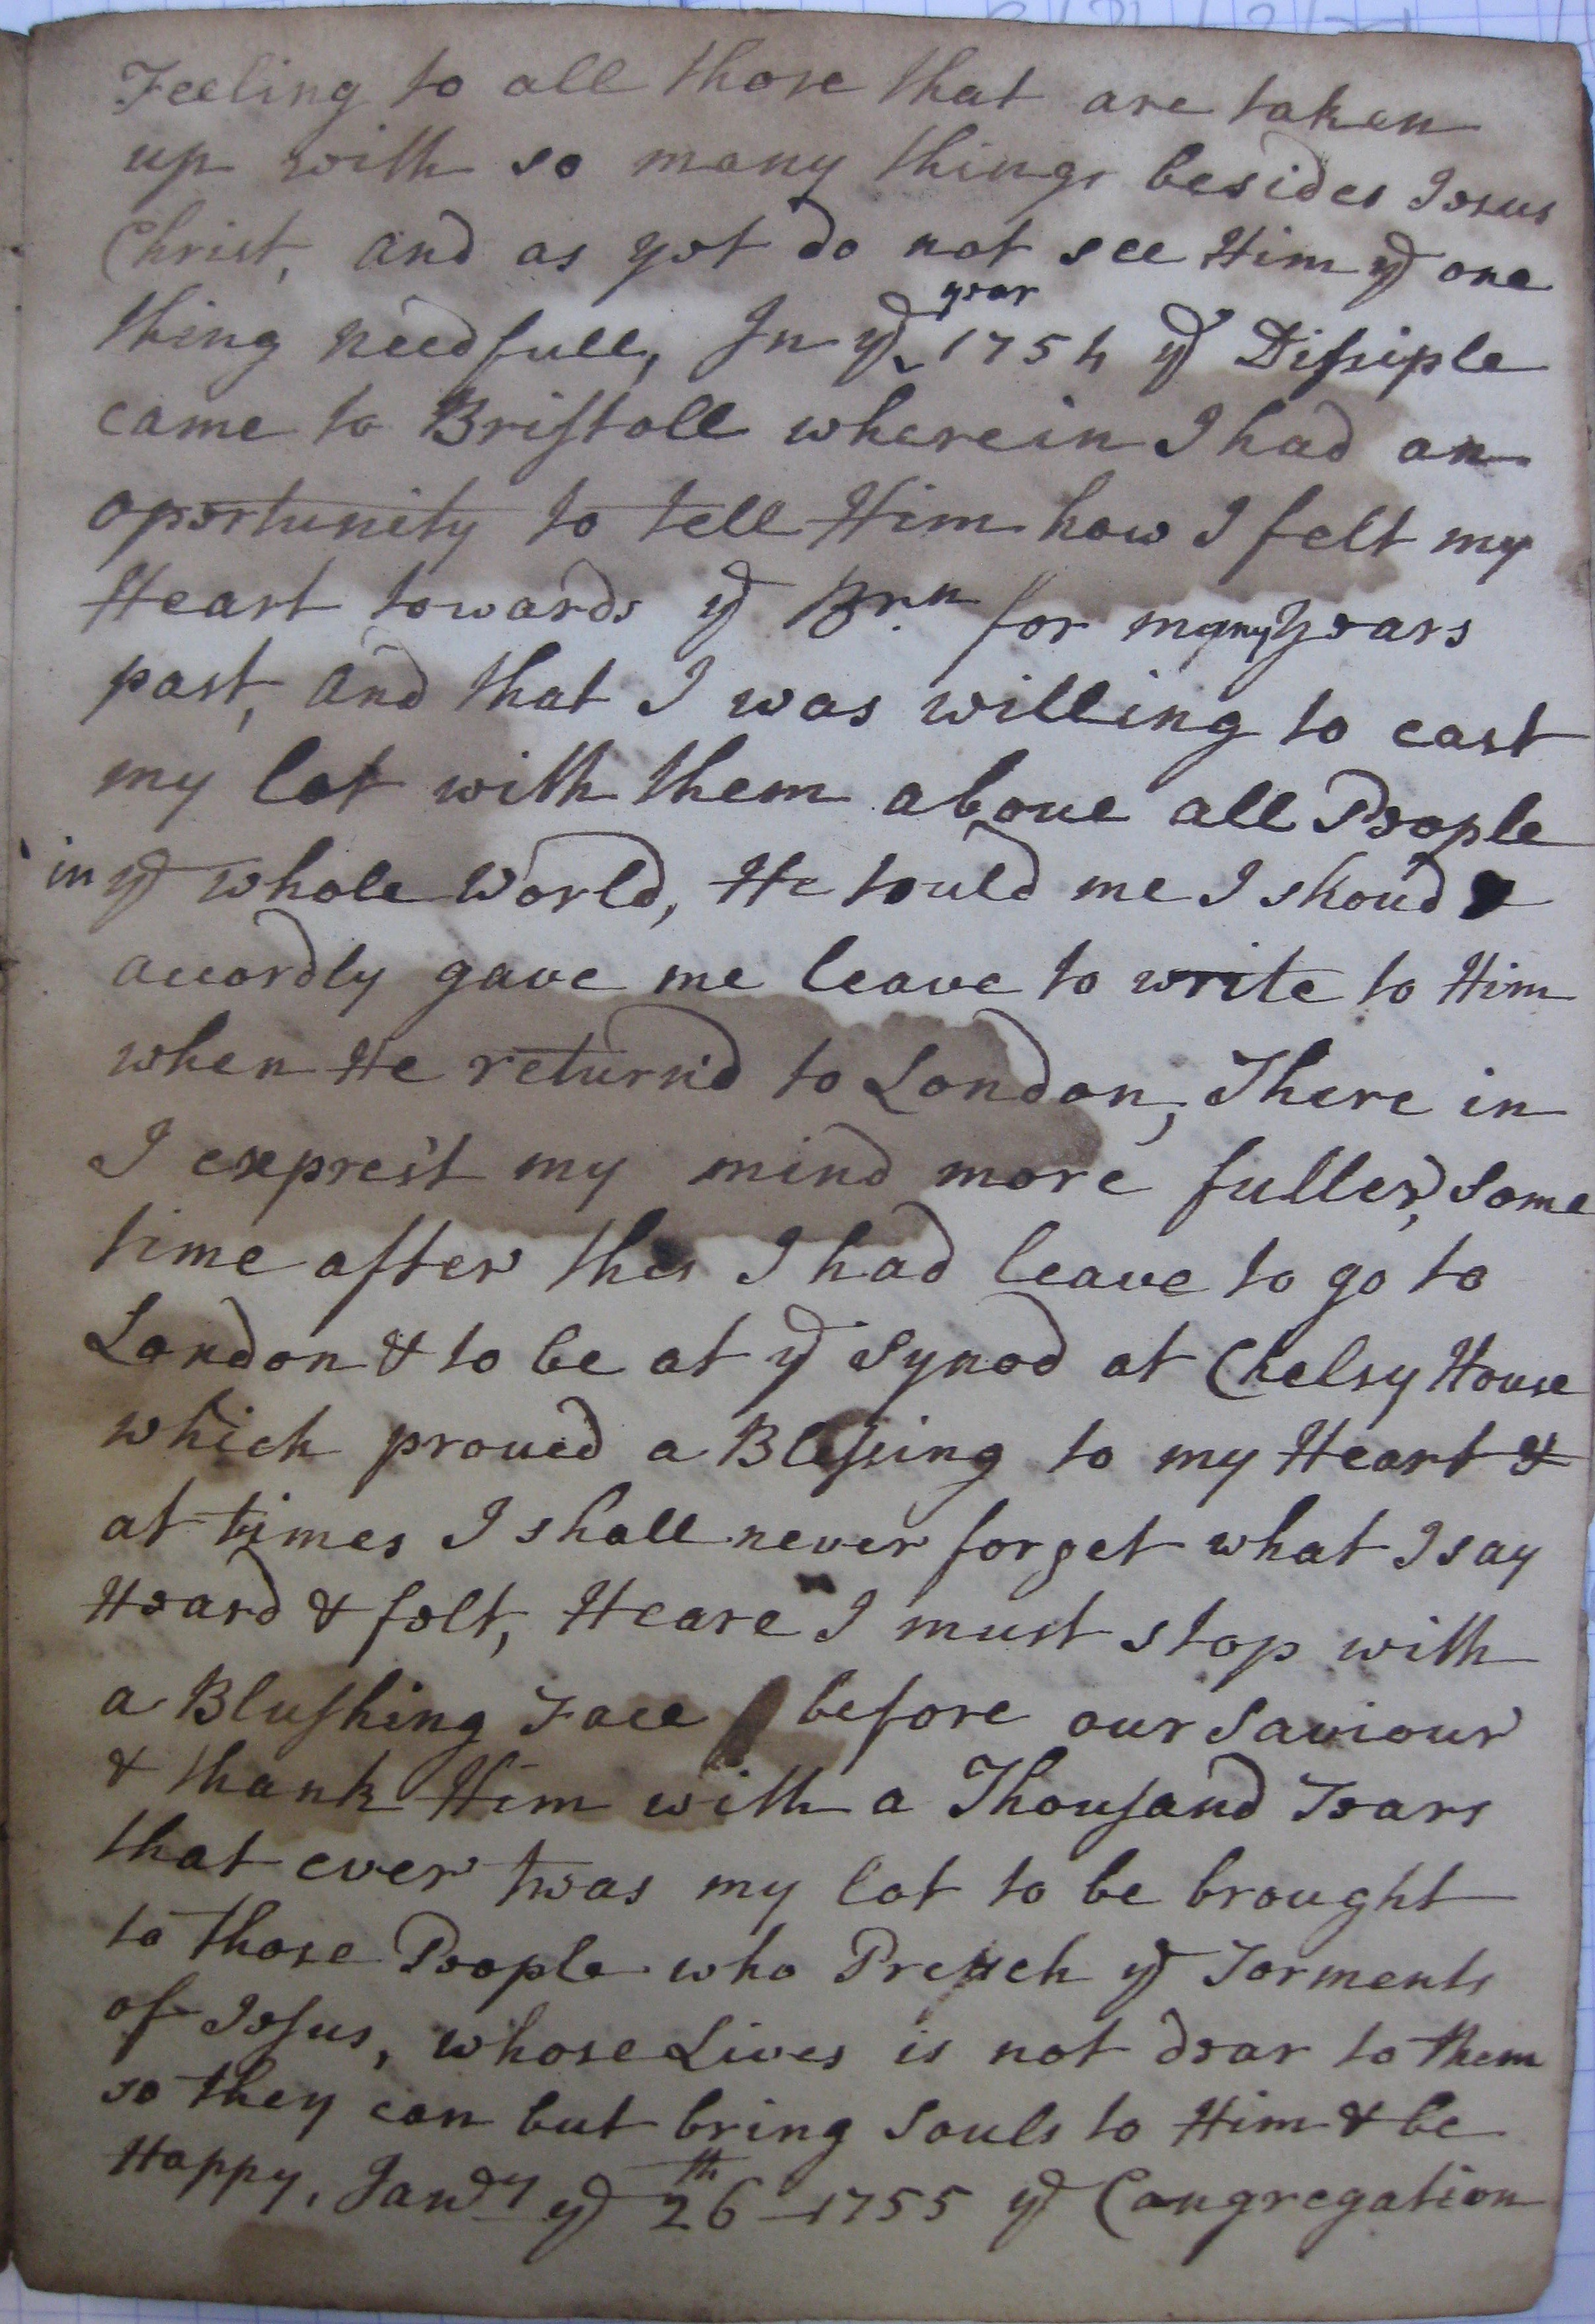 Feeling to all those that are taken
up with so many things besides Jesus
Christ, and as yet do not see Him ye one
thing needfull, In ye year 1754 ye Dissiple
came to Bristoll wherein I had an
oportunity to tell Him how I felt my
Heart towards ye Brn for many years
past, and that I was willing to cast
my lot with them above all People
in ye whole World, He tould me I shoud &
accordly gave me leave to write to Him
when He return'd to London, There in
I exprest my mind more fuller, Some
time after this I had leave to go to
London & to be at ye Synod at Chelsy House
which proved a Blessing to my Heart &
at times I shall never forget what I say
Heard & felt, Heare I must stop with
a Blushing Face before our Saviour
& thank Him with a Thousand Tears
that ever twas my lot to be brought
to those People who Preach ye Torments
of Jesus, whose Lives is not dear to them
so they can but bring Souls to Him & be
Happy, Jandy ye 26th 1755 ye Congregation